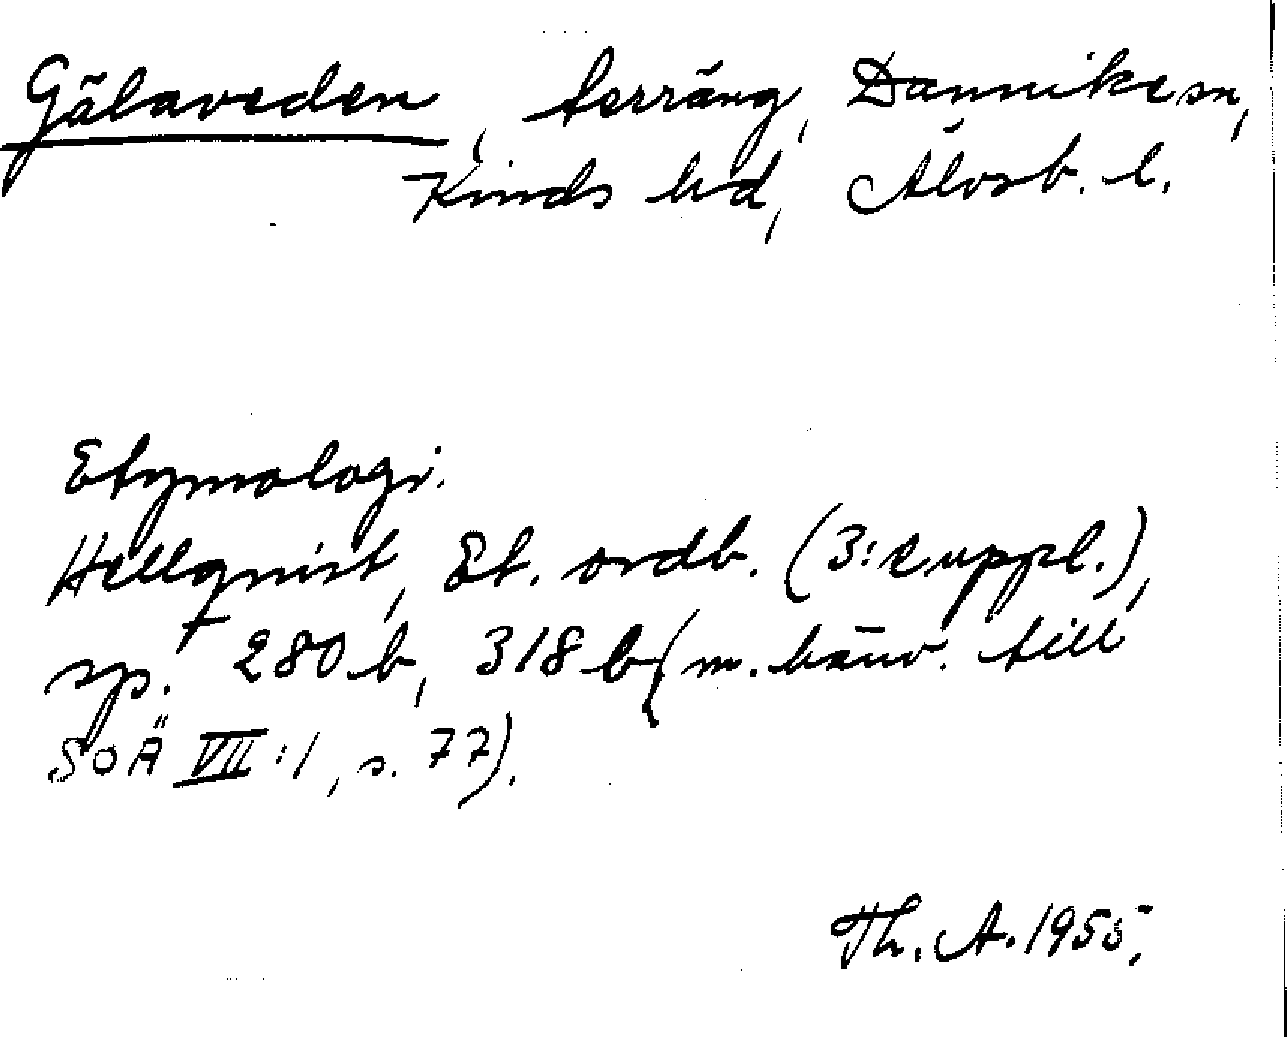 Gälaveden, terräng, Dannike sn,
Kinds hd, Älvsb. l.
Etymologi.
Hellquist, Et. ordb. (3:e uppl.),
sp. 280 b, 318 b (m. hänv. till
SOÄ VII:1, s. 77).
Th. A. 1955.